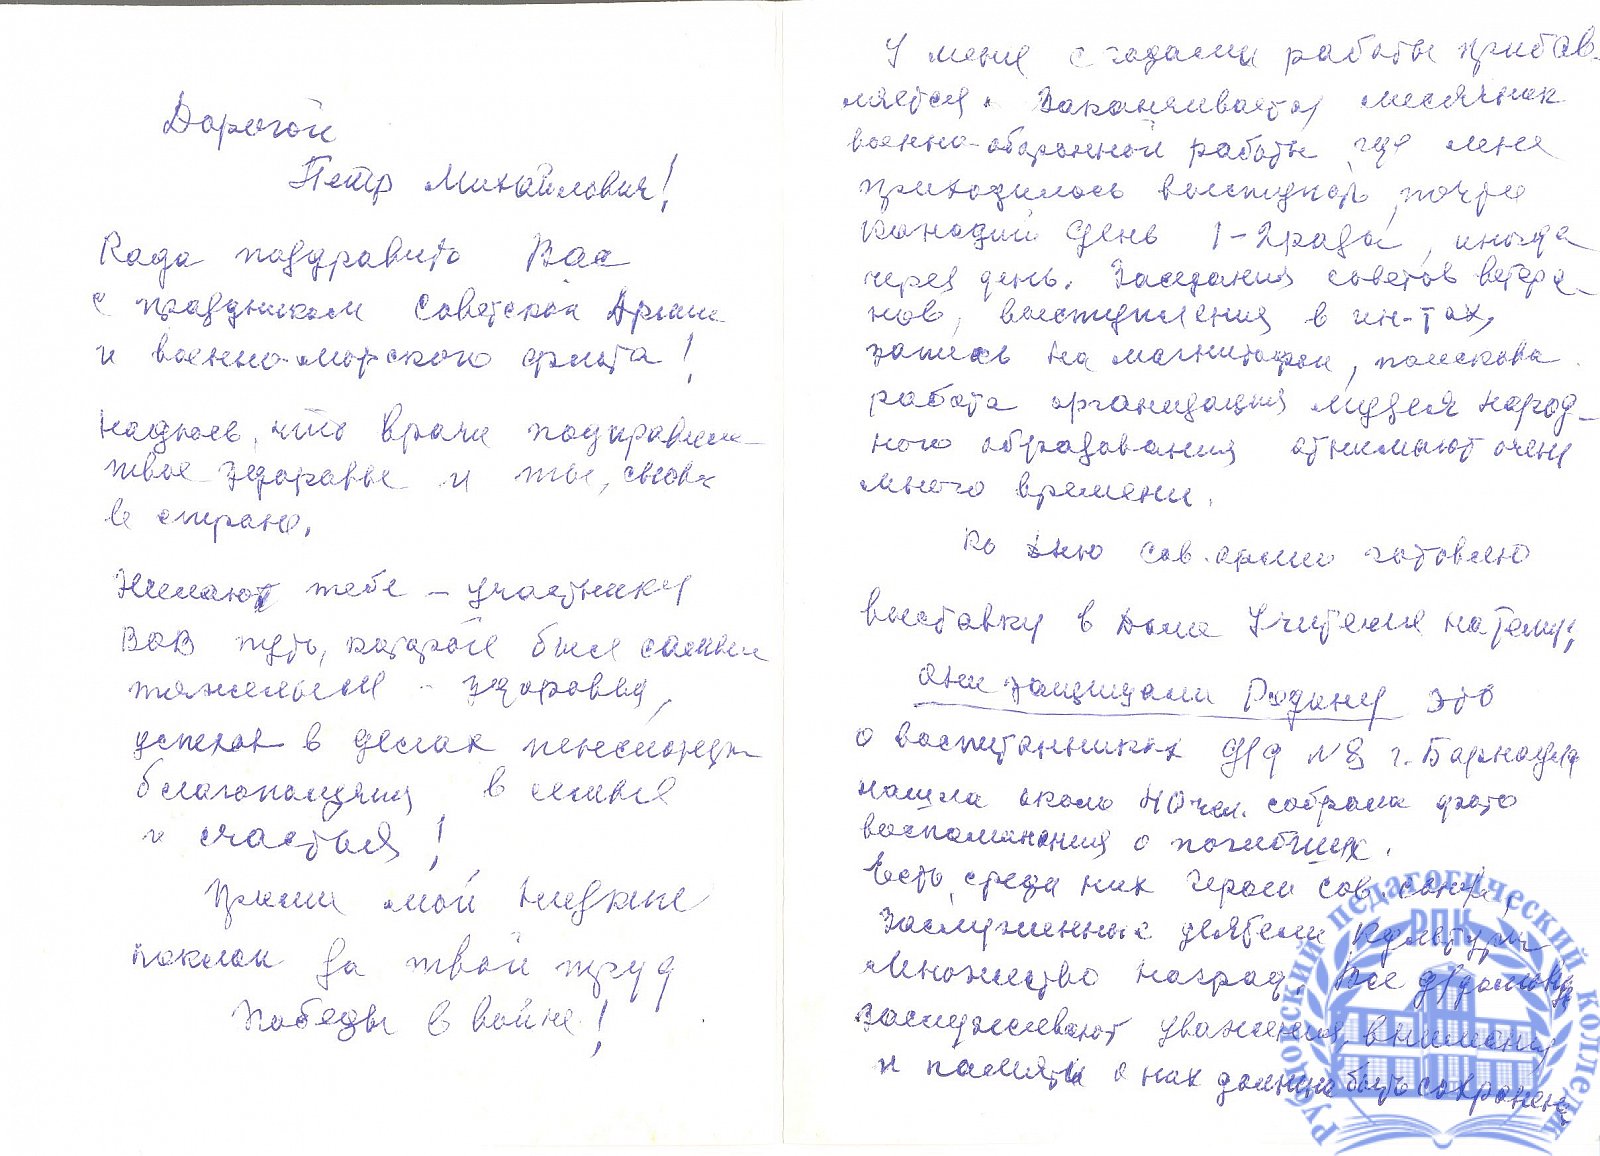 Дорогой
Петр Михайлович!
Рада поздравить Вас
с праздником Советской Армии
и военно-морского флота!
Надеюсь, что врачи подправили
твое здоровье и ты, снова
в строю.
Желаю тебе - участнику
ВОВ путь, которой был самым
тяжелым - здоровья,
успехов в делах пенсионера
благополучия в семье
и счастья!
Прими мой низкий
поклон за твой труд
Победы в войне!
У меня с годами работы прибав-
ляется. Заканчивается месячник
военно-оборонной работы, где мне
приходилось выступать, почти
каждый день 1-2 раза, иногда
через день. Заседания советов ветера-
нов, выступления в ин-тах,
запись на магнитофон, поисковая
работа организация музея народ-
ного образования отнимают очень
много времени.
Ко дню сов. армии готовлю
выставку в Доме Учителя на тему:
они защищали Родину это
о воспитанниках д/д №8 г. Барнаула
нашла около 40 чел. собрала фото
воспоминания о погибших.
Есть, среди них герои сов. союза,
Заслуженные деятели культуры
множество наград. Все д/домовцы
заслуживают уважения, внимания
и память о них должна быть сохранена
Рубцовский педагогический колледж
РПК